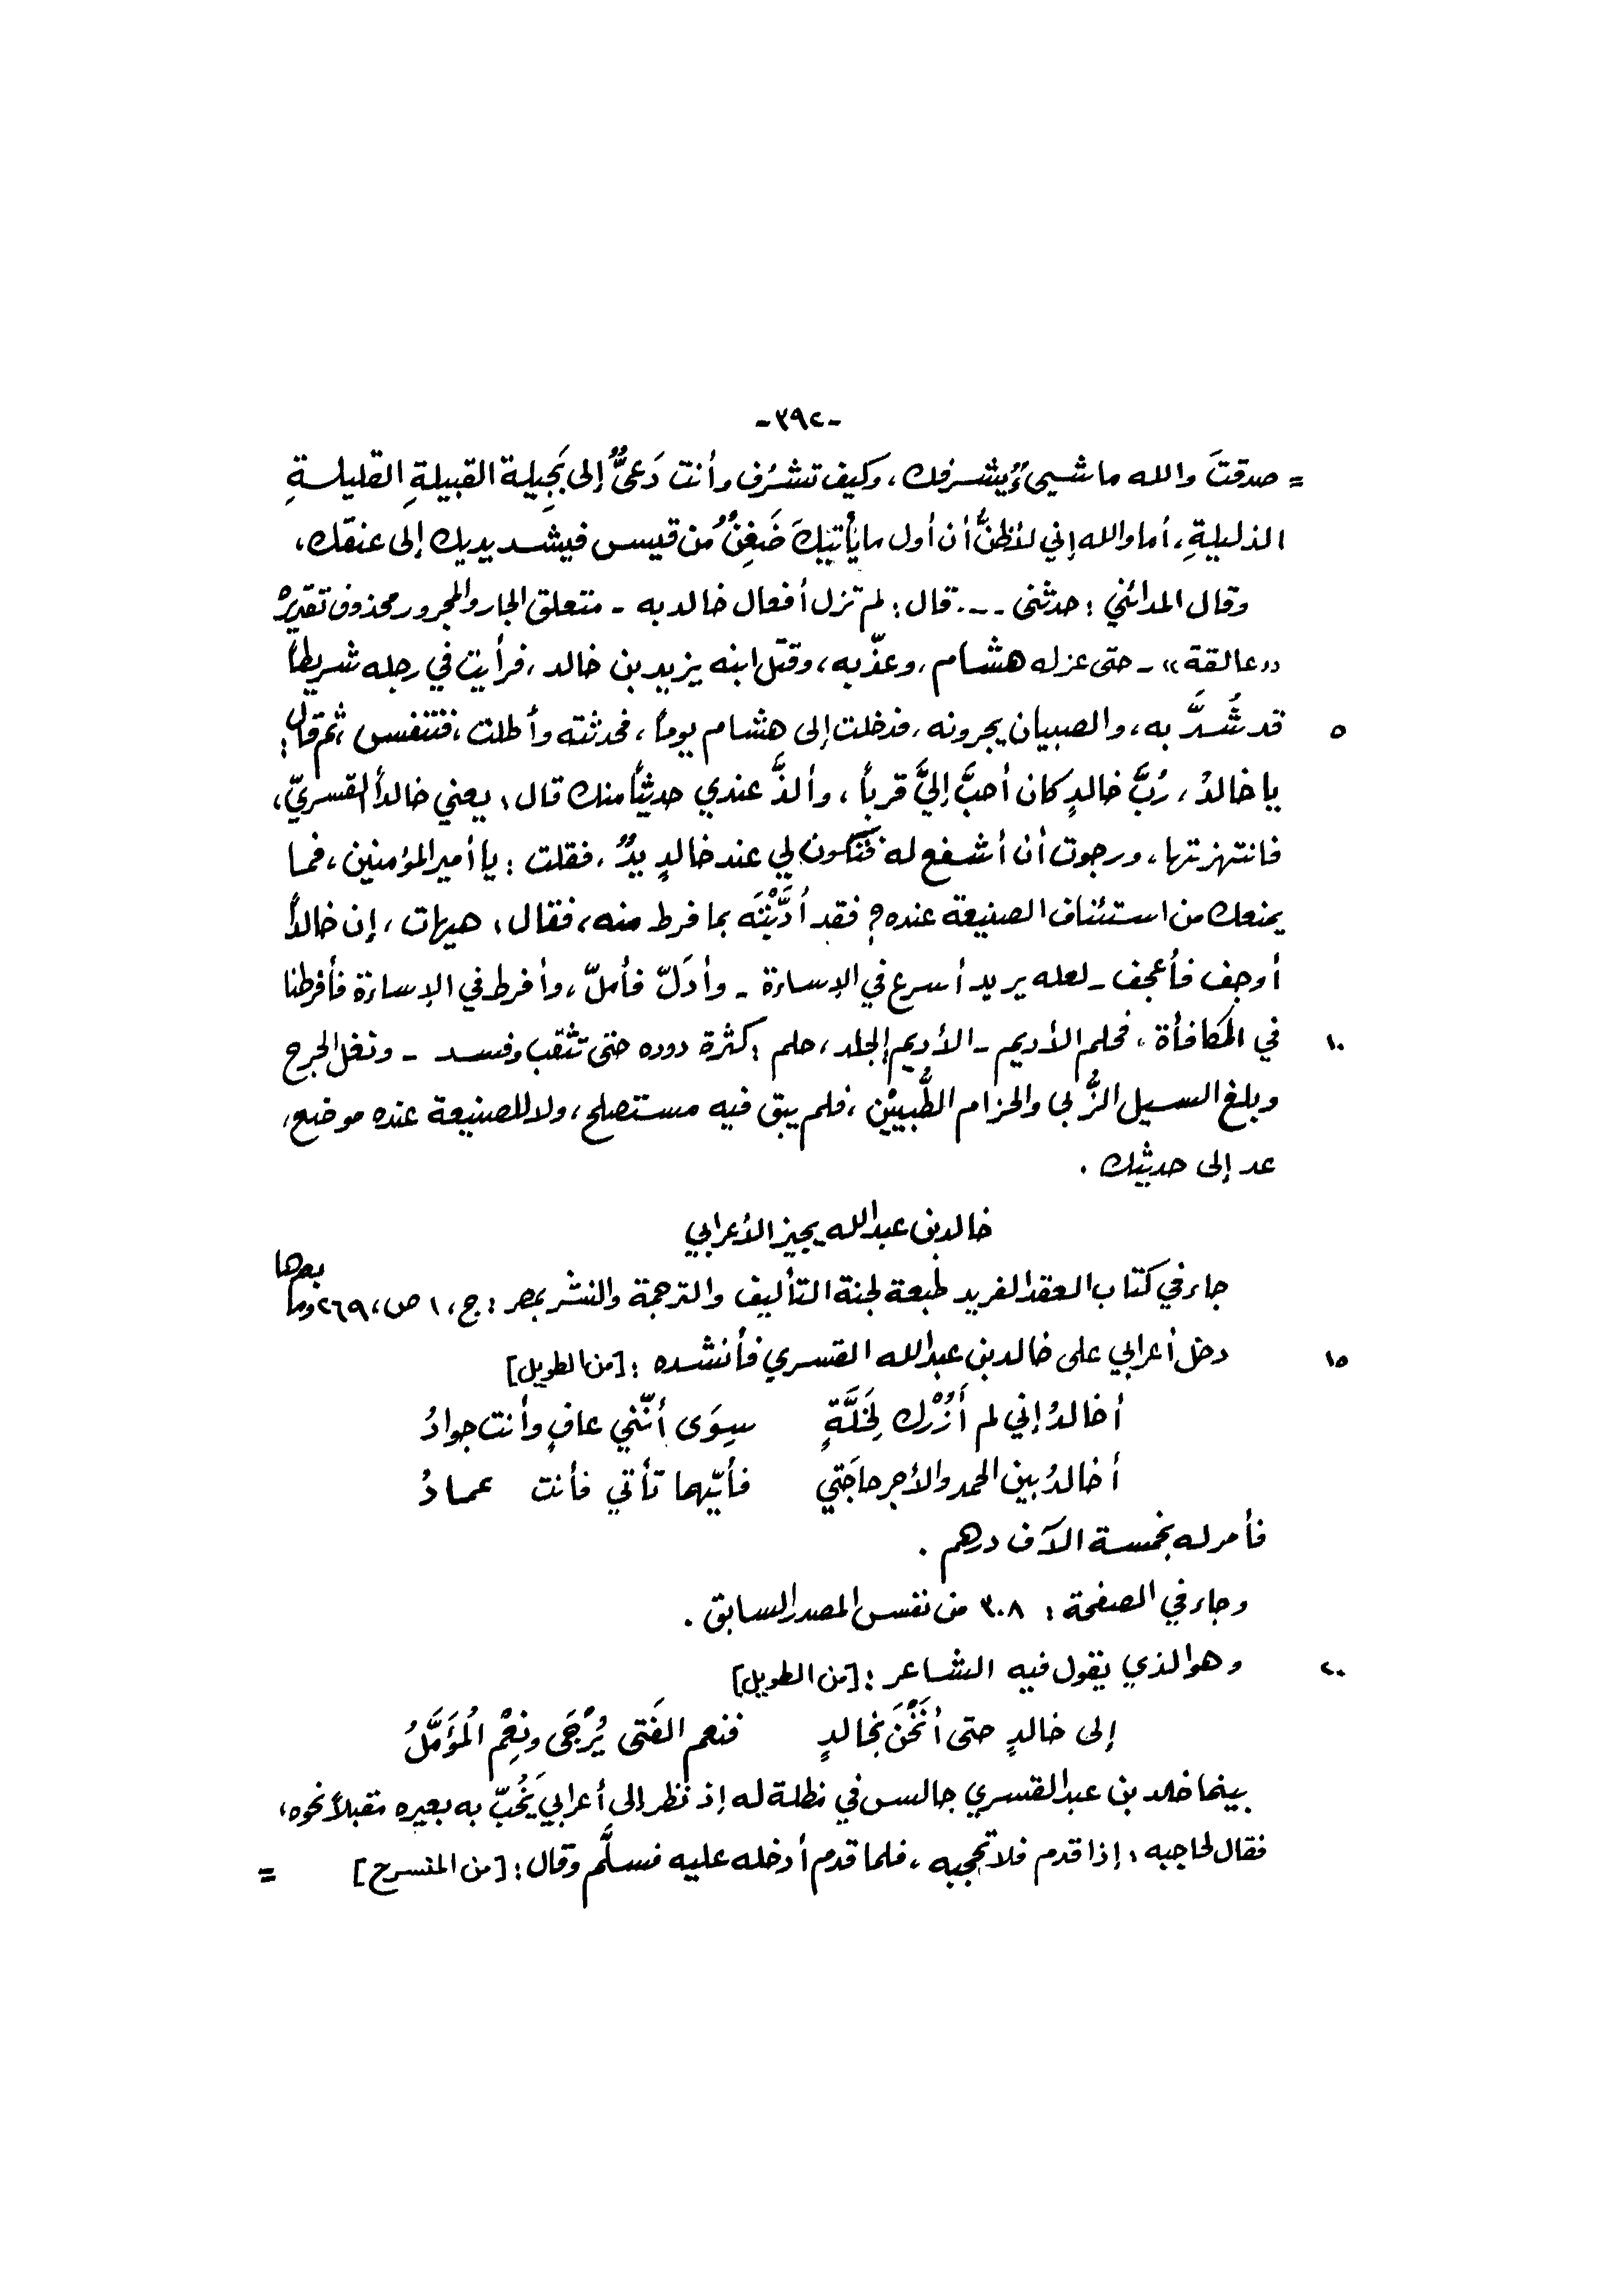 -٣٩٢-
= صدقتَ والله ما شيىءٌ يشرفك، وكيف تشرُف وأنت دَعيٌّ إلى بَجِيلة القبيلةِ القليلةِ
الذليلةِ، أما والله إني لأظنُّ أن أول ما يأتيكَ ضَغِنٌ من قيس فيشد يديك إلى عنقك،
وقال المدائني: حدثني ... قال: لم تزل أفعال خالد به - متعلق الجار والمجرور محذوف تقديره
«عالقة» - حتى عزله هشام، وعذّبه، وقتل ابنه يزيد بن خالد، فرأيت في رجله شريطاً
٥ قد شُدَّ به، والصبيان يجرونه، فدخلت إلى هشام يوماً، فحدثته وأطلت، فتنفس، ثم قال:
يا خالدُ، رُبَّ خالدٍ كان أحبَّ إليَّ قرباً، وألذَّ عندي حديثاً منك قال: يعني خالداً القسريّ،
فانتهزتها، ورجوت أن أشفع له فَتَكون لي عند خالدٍ يدٌ، فقلت: يا أمير المؤمنين، فما
يمنعك من استئناف الصنيعة عنده؟ فقد أدَّبْتَه بما فرط منه، فقال: هيهات، إن خالداً
أوجف فأعجف - لعله يريد أسرع في الإساءة - وأدَلّ فأملّ، وأفرط في الإساءة فأفرطنا
١٠ في المكافأة، فحلم الأديم - الأديم: الجلد، حلم: كثرة دوده حتى تثقب وفسد - ونغل الجرح
وبلغ السيل الزُّبى والحزام الطُّبيين، فلم يبق فيه مستصلح، ولا للصنيعة عنده موضع،
عد إلى حديثك.
خالد بن عبد الله يجيز الأعرابي
جاء في كتاب العقد الفريد طبعة لجنة التأليف والترجمة والنشر بمصر: ج، ١ ص، ٢٦٩ وما بعدها
١٥ دخل أعرابي على خالد بن عبد الله القسري فأنشده: [من الطويل]
أخالدُ إني لم أَزُرْك لِخَلَّةٍ سِوَى أنّني عافٍ وأنت جوادُ
أخالدُ بين الحمد والأجر حاجَتي فأيّهما تأتي فأنت عمادُ
فأمر له بخمسة الآف درهم.
وجاء في الصفحة: ٣٠٨ من نفس المصدر السابق.
٢٠ وهو الذي يقول فيه الشاعر: [من الطويل]
إلى خالدٍ حتى أنَخْنَ بخالدٍ فنعم الفَتى يُرْجَى ونِعْم المُؤَمَّلُ
بينما خالد بن عبد القسري جالس في مظلة له إذ نظر إلى أعرابي يَخُبّ به بعيره مقبلاً نحوه،
فقال لحاجبه: إذا قدم فلا تحجبه، فلما قدم أدخله عليه فسلَّم وقال: [من المنسرح] =